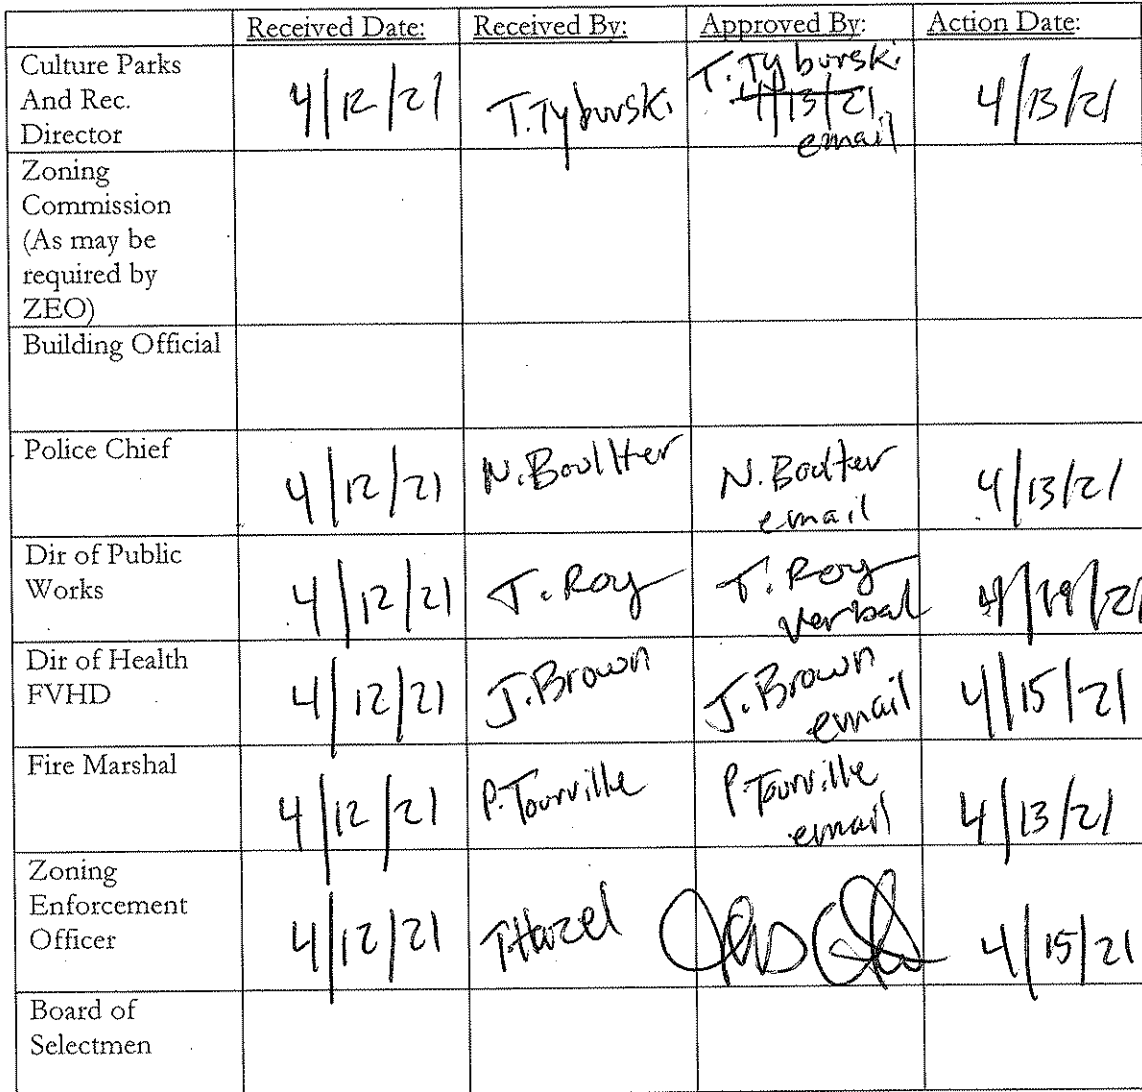 Received Date: Received By: Approved By: Action Date:
Culture Parks
And Rec.
Director
4/12/21 T. Tyburski T. Tyburski
4/13/21
email
4/13/21
Zoning
Commission
(As may be
required by
ZEO)
Building Official
Police Chief
4/12/21 N. Boullter N. Boulter
email
4/13/21
Dir of Public
Works
4/12/21 T. Roy T. Roy
verbal
4/19/21
Dir of Health
FVHD
4/12/21 J. Brown J. Brown
email
4/15/21
Fire Marshal
4/12/21 P. Tourville P. Tourville
email
4/13/21
Zoning
Enforcement
Officer
4/12/21 T Hazel
4/15/21
Board of
Selectmen